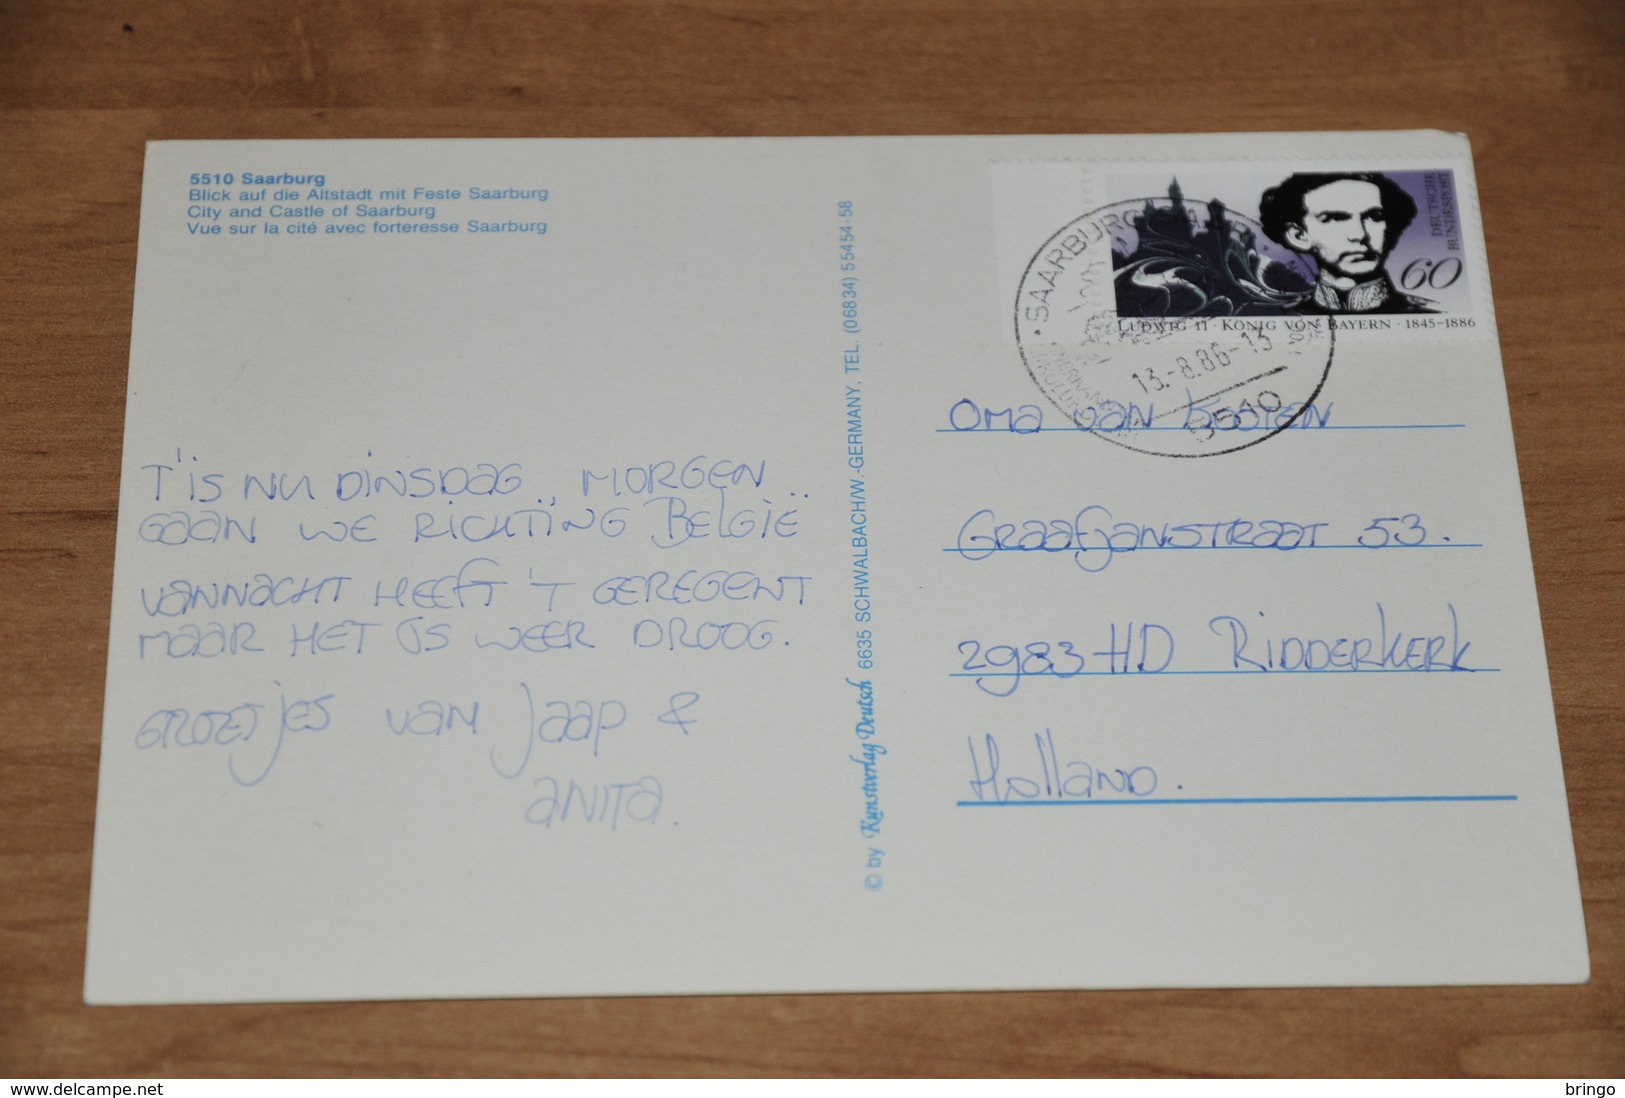 5510 Saarburg
Blick auf die Altstadt mit Feste Saarburg
City and Castle of Saarburg
Vue sur la cité avec forteresse Saarburg
T'is nu dinsdag, morgen
gaan we richting België
vannacht heeft 't geregent
maar het is weer droog.
Groetjes van Jaap &
Anita.
© by Kunstverlag Deutsch 6635 SCHWALBACH/W.-GERMANY, TEL. (06834) 55454-58
DEUTSCHE
BUNDESPOST
60
LUDWIG II · KÖNIG VON BAYERN · 1845-1886
SAARBURG
13.-8.86-13
5510
Oma van
Graafjanstraat 53.
2983 HD Ridderkerk
Holland.
www.delcampe.net
bringo